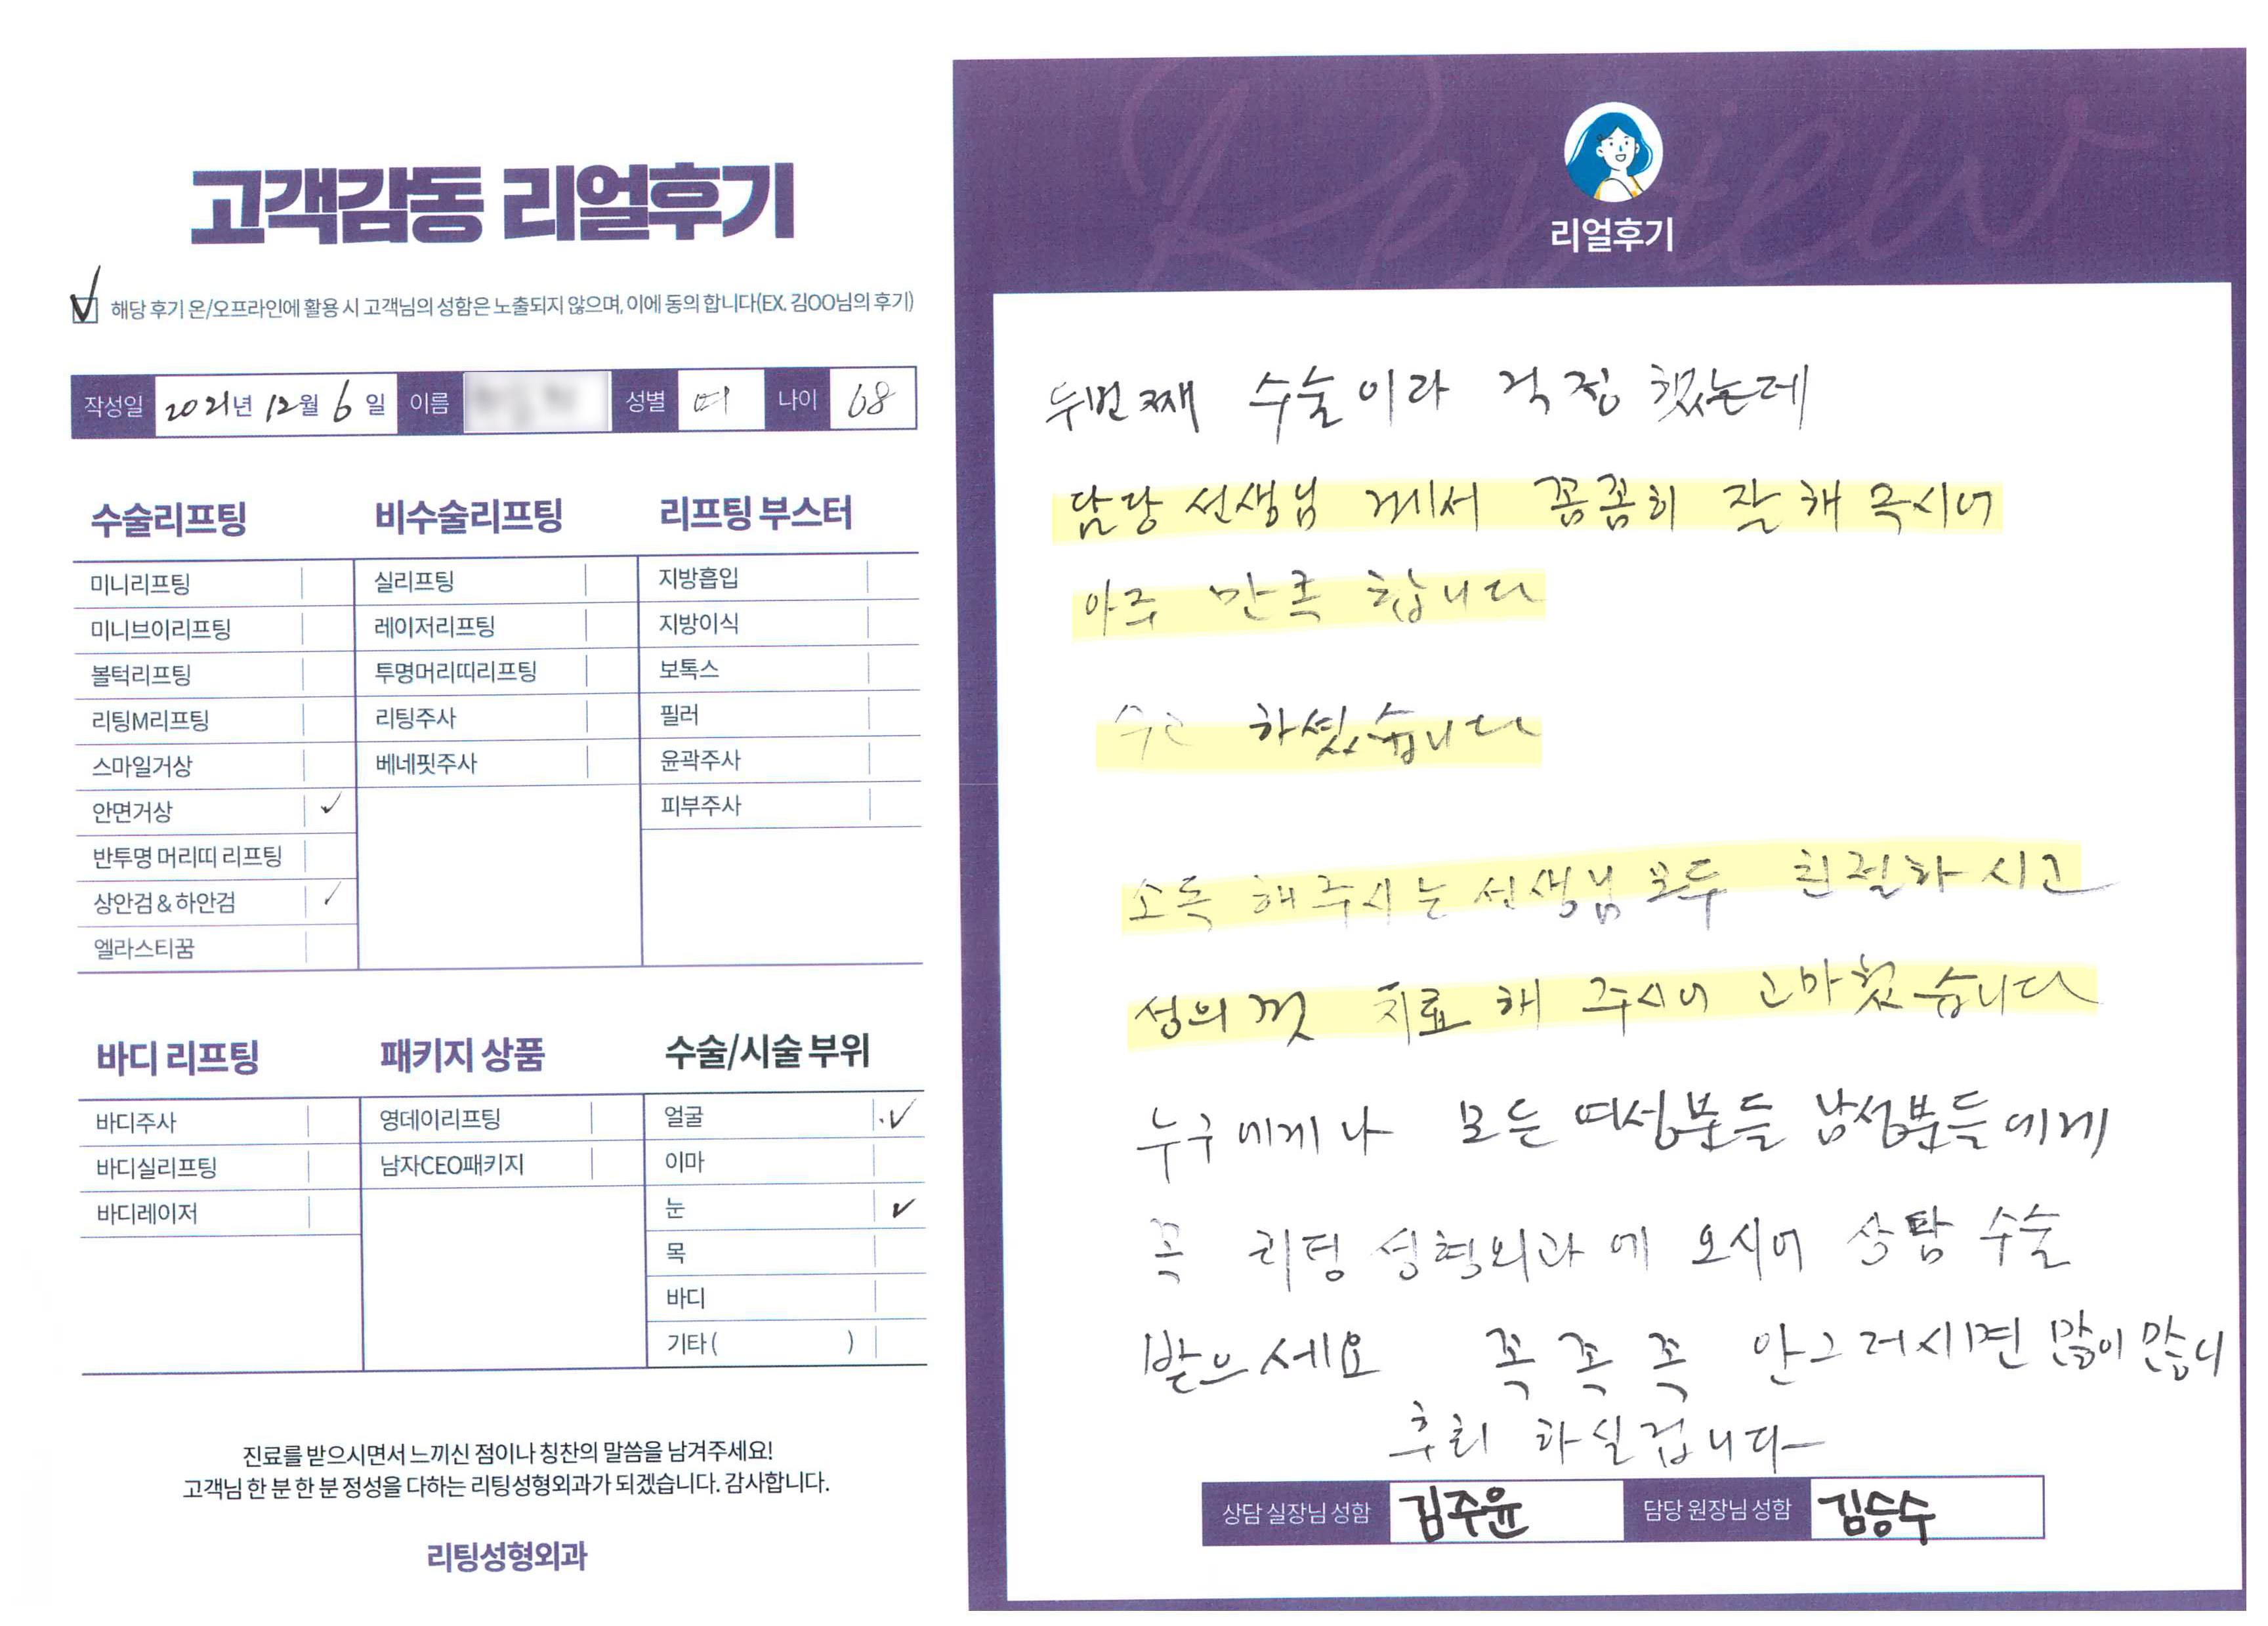 고객감동 리얼후기
해당 후기 온/오프라인에 활용 시 고객님의 성함은 노출되지 않으며, 이에 동의 합니다(EX. 김OO님의 후기)
작성일 2021년 12월 6일 이름 성별 여 나이 68
수술리프팅
미니리프팅
미니브이리프팅
볼턱리프팅
리팅M리프팅
스마일거상
안면거상 ✓
반투명 머리띠 리프팅
상안검 & 하안검 ✓
엘라스티꿈
비수술리프팅
실리프팅
레이저리프팅
투명머리띠리프팅
리팅주사
베네핏주사
리프팅 부스터
지방흡입
지방이식
보톡스
필러
윤곽주사
피부주사
바디 리프팅
바디주사
바디실리프팅
바디레이저
패키지 상품
영데이리프팅
남자CEO패키지
수술/시술 부위
얼굴 ✓
이마
눈 ✓
목
바디
기타 ( )
진료를 받으시면서 느끼신 점이나 칭찬의 말씀을 남겨주세요!
고객님 한 분 한 분 정성을 다하는 리팅성형외과가 되겠습니다. 감사합니다.
리팅성형외과
Review
리얼후기
두번째 수술이라 걱정했는데
담당 선생님 께서 꼼꼼히 잘 해 주시어
아주 만족 합니다
수고 하셨습니다
소독 해주시는 선생님 모두 친절하시고
성의껏 치료 해 주시어 고마웠습니다
누구에게나 모든 여성분들 남성분들에게
꼭 리팅 성형외과에 오시어 상담 수술
받으세요 꼭 꼭 꼭 안그러시면 많이 많이
후회 하실겁니다
상담 실장님 성함 김주윤 담당 원장님 성함 김승수